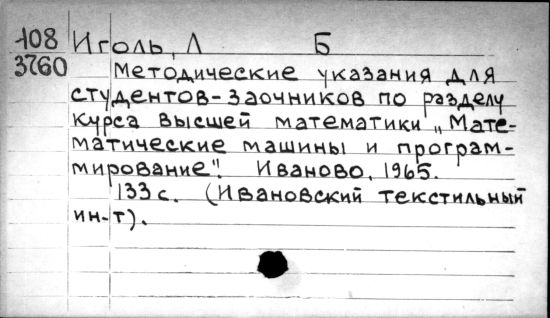 108 Иголь, Л Б
3760 Методические указания для
студентов-заочников по разделу
курса высшей математики „Мате-
матические машины и програм-
мирование". Иваново, 1965.
133 с. (Ивановский текстильный
ин-т).